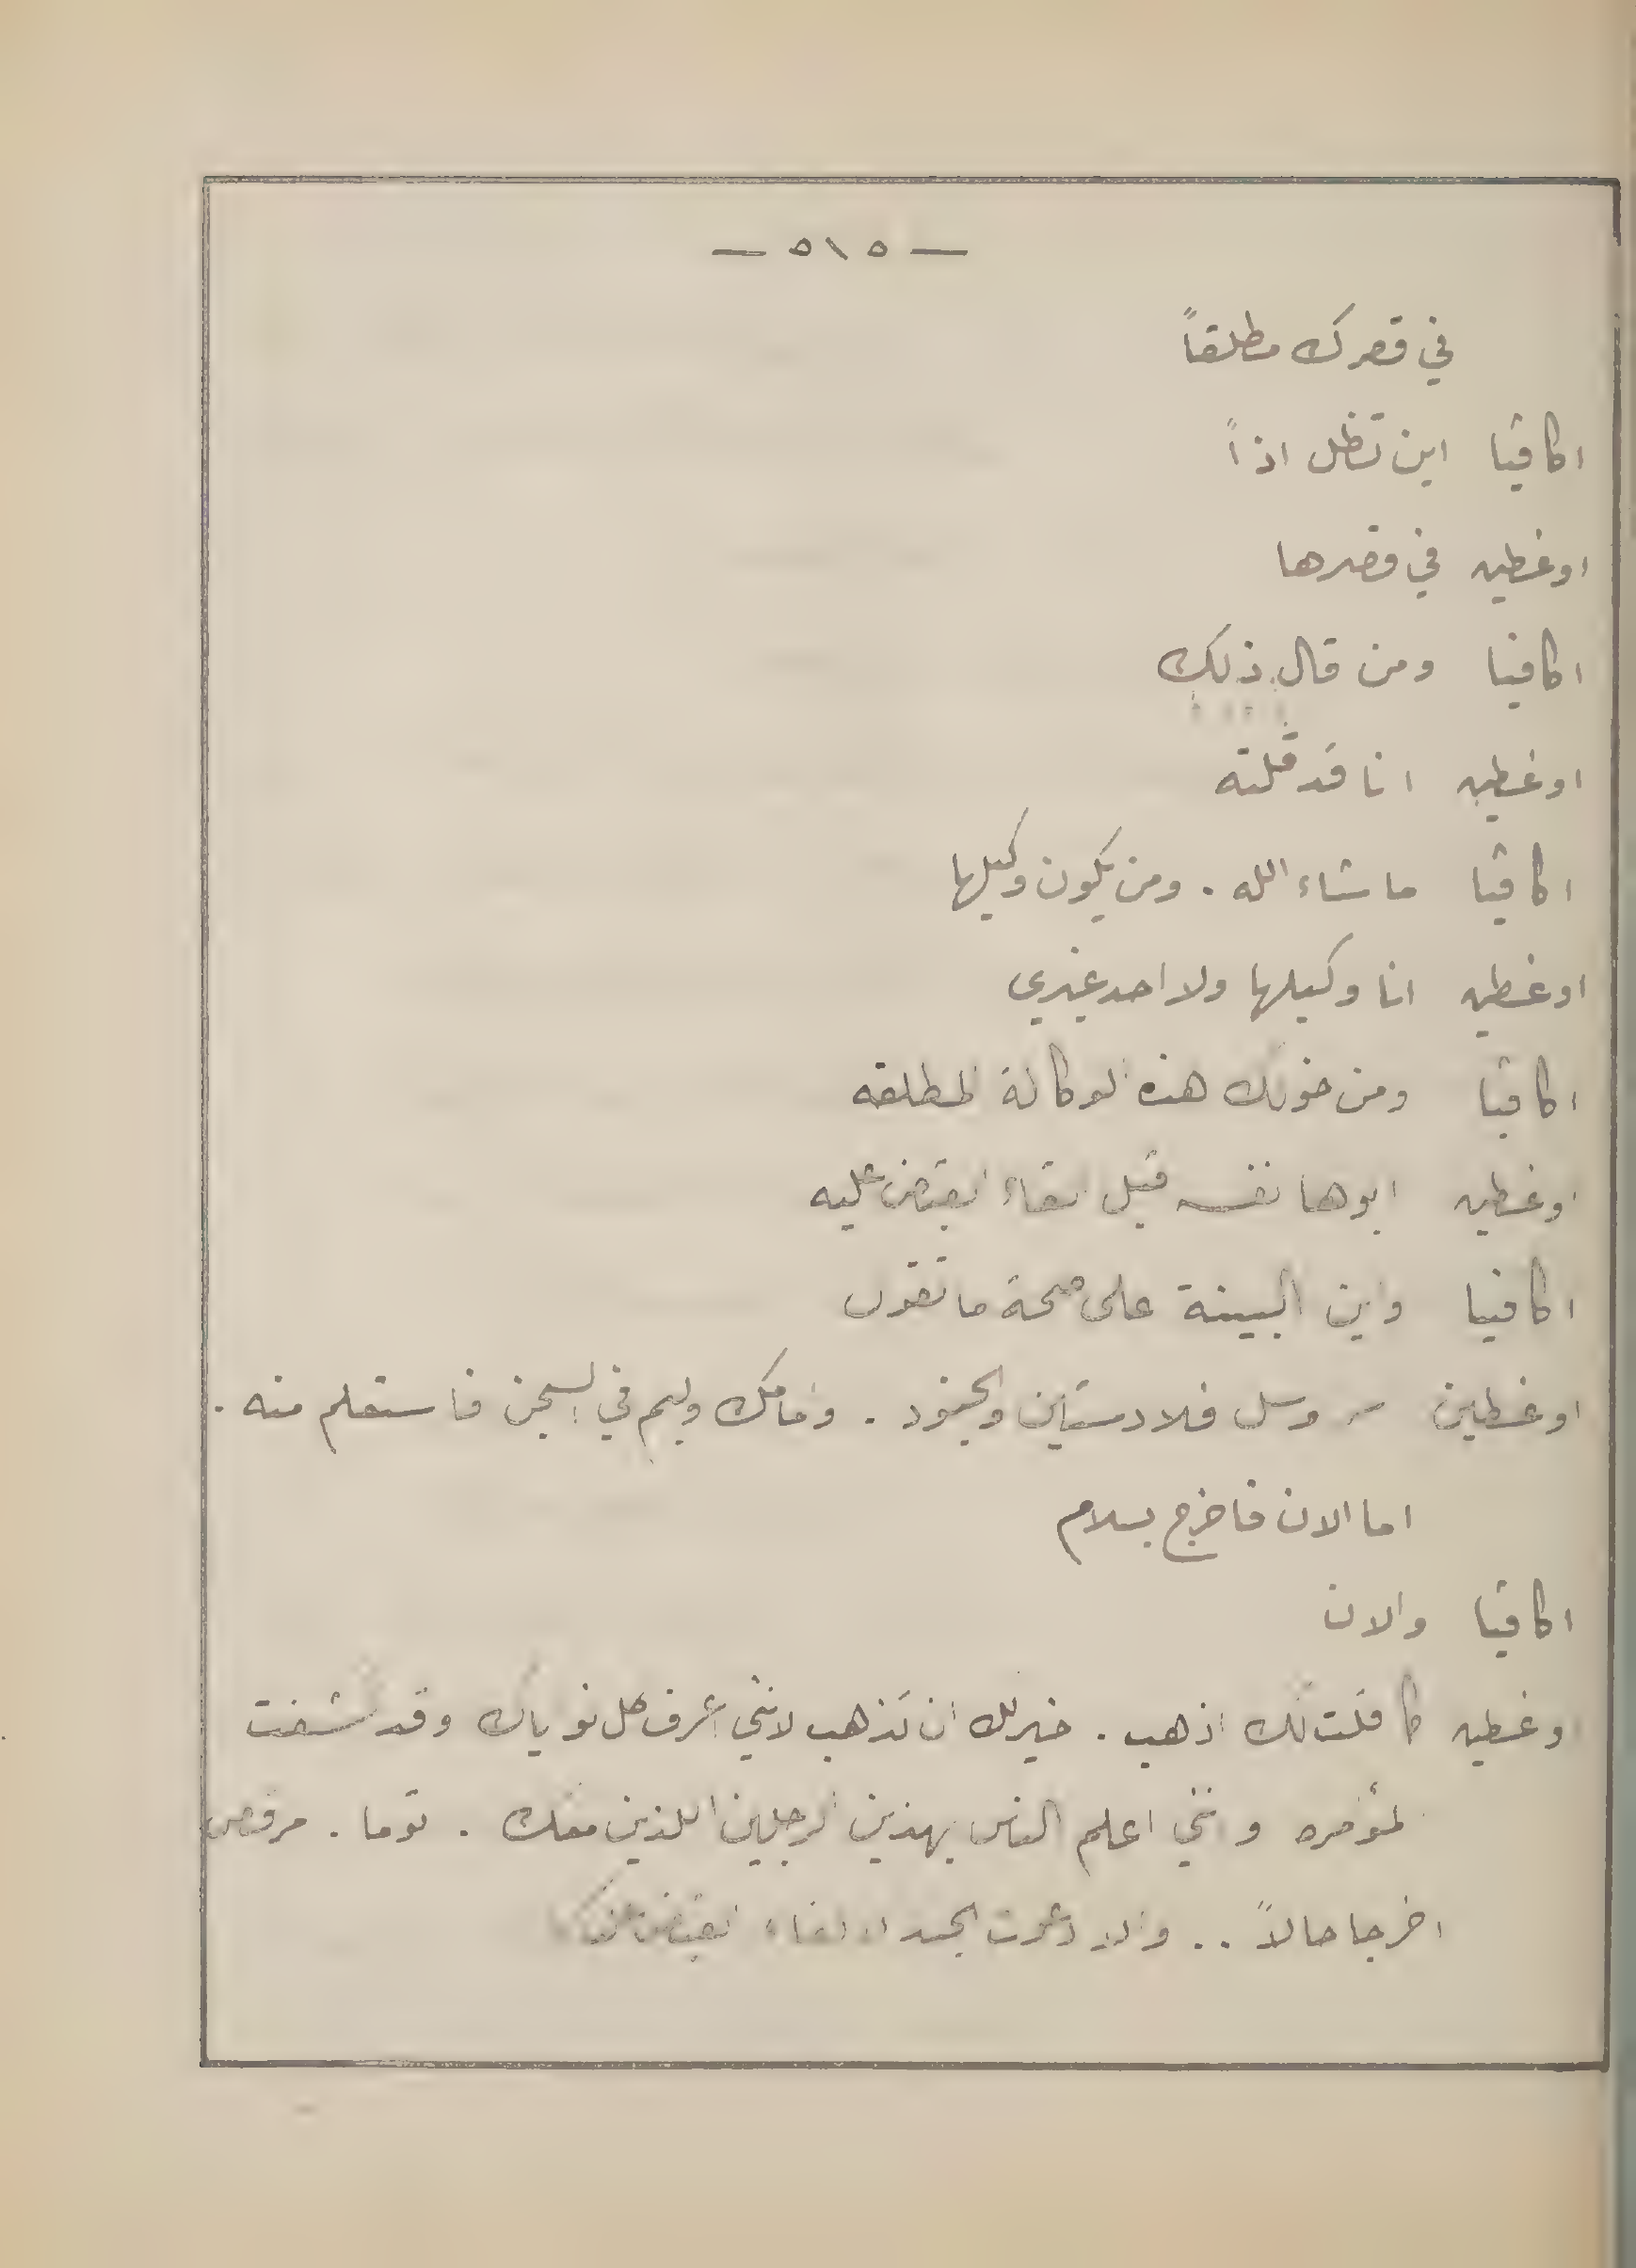 — ٥١٥ —
في قصرك مطلقاً
اكاڤيا اين تظل اذاً
اوغسطين في قصرها
اكاڤيا ومن قال ذلك
اوغسطين انا قد قلته
اكاڤيا ما شاء الله . ومن يكون وكيلها
اوغسطين انا وكيلها ولا احد غيري
اكاڤيا ومن خولك هذه الوكالة المطلقه
اوغسطين ابوها نفسه قبل القاء القبض عليه
اكاڤيا واين البينة على صحة ما تقول
اوغسطين سر وسل فلادستاين والجنود . وخامك وليم في السجن فاستعلم منه .
اما الان فاخرج بسلام
اكاڤيا والان
اوغسطين كما قلت لك اذهب . خير لك ان تذهب لانني اعرف كل نوياك وقد كشفت
المؤمره وانني اعلم الناس بهذين الرجلين اللذين معك . توما . مرقص
اخرجا حالاً . . والا دعوت الجند لالقاء القبض